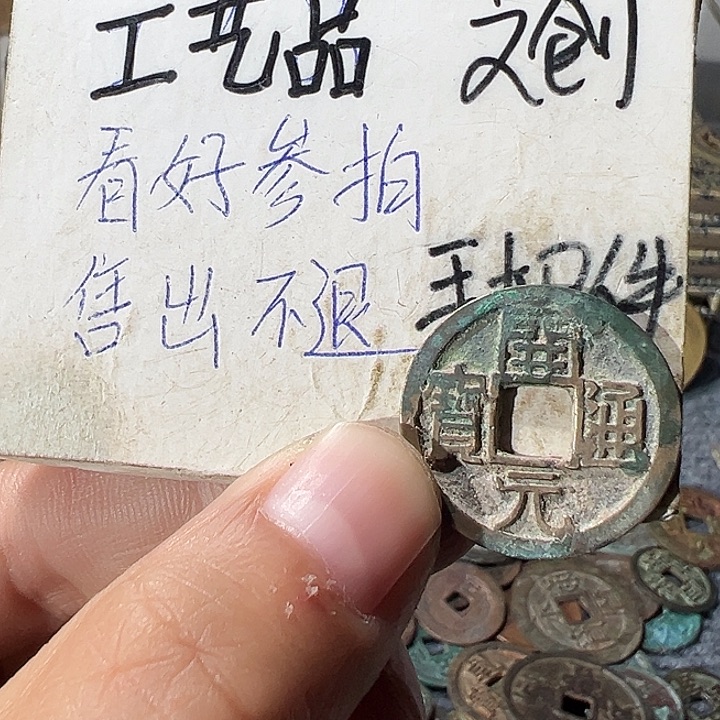 工艺品 文创
看好参拍
售出不退
開元通寶